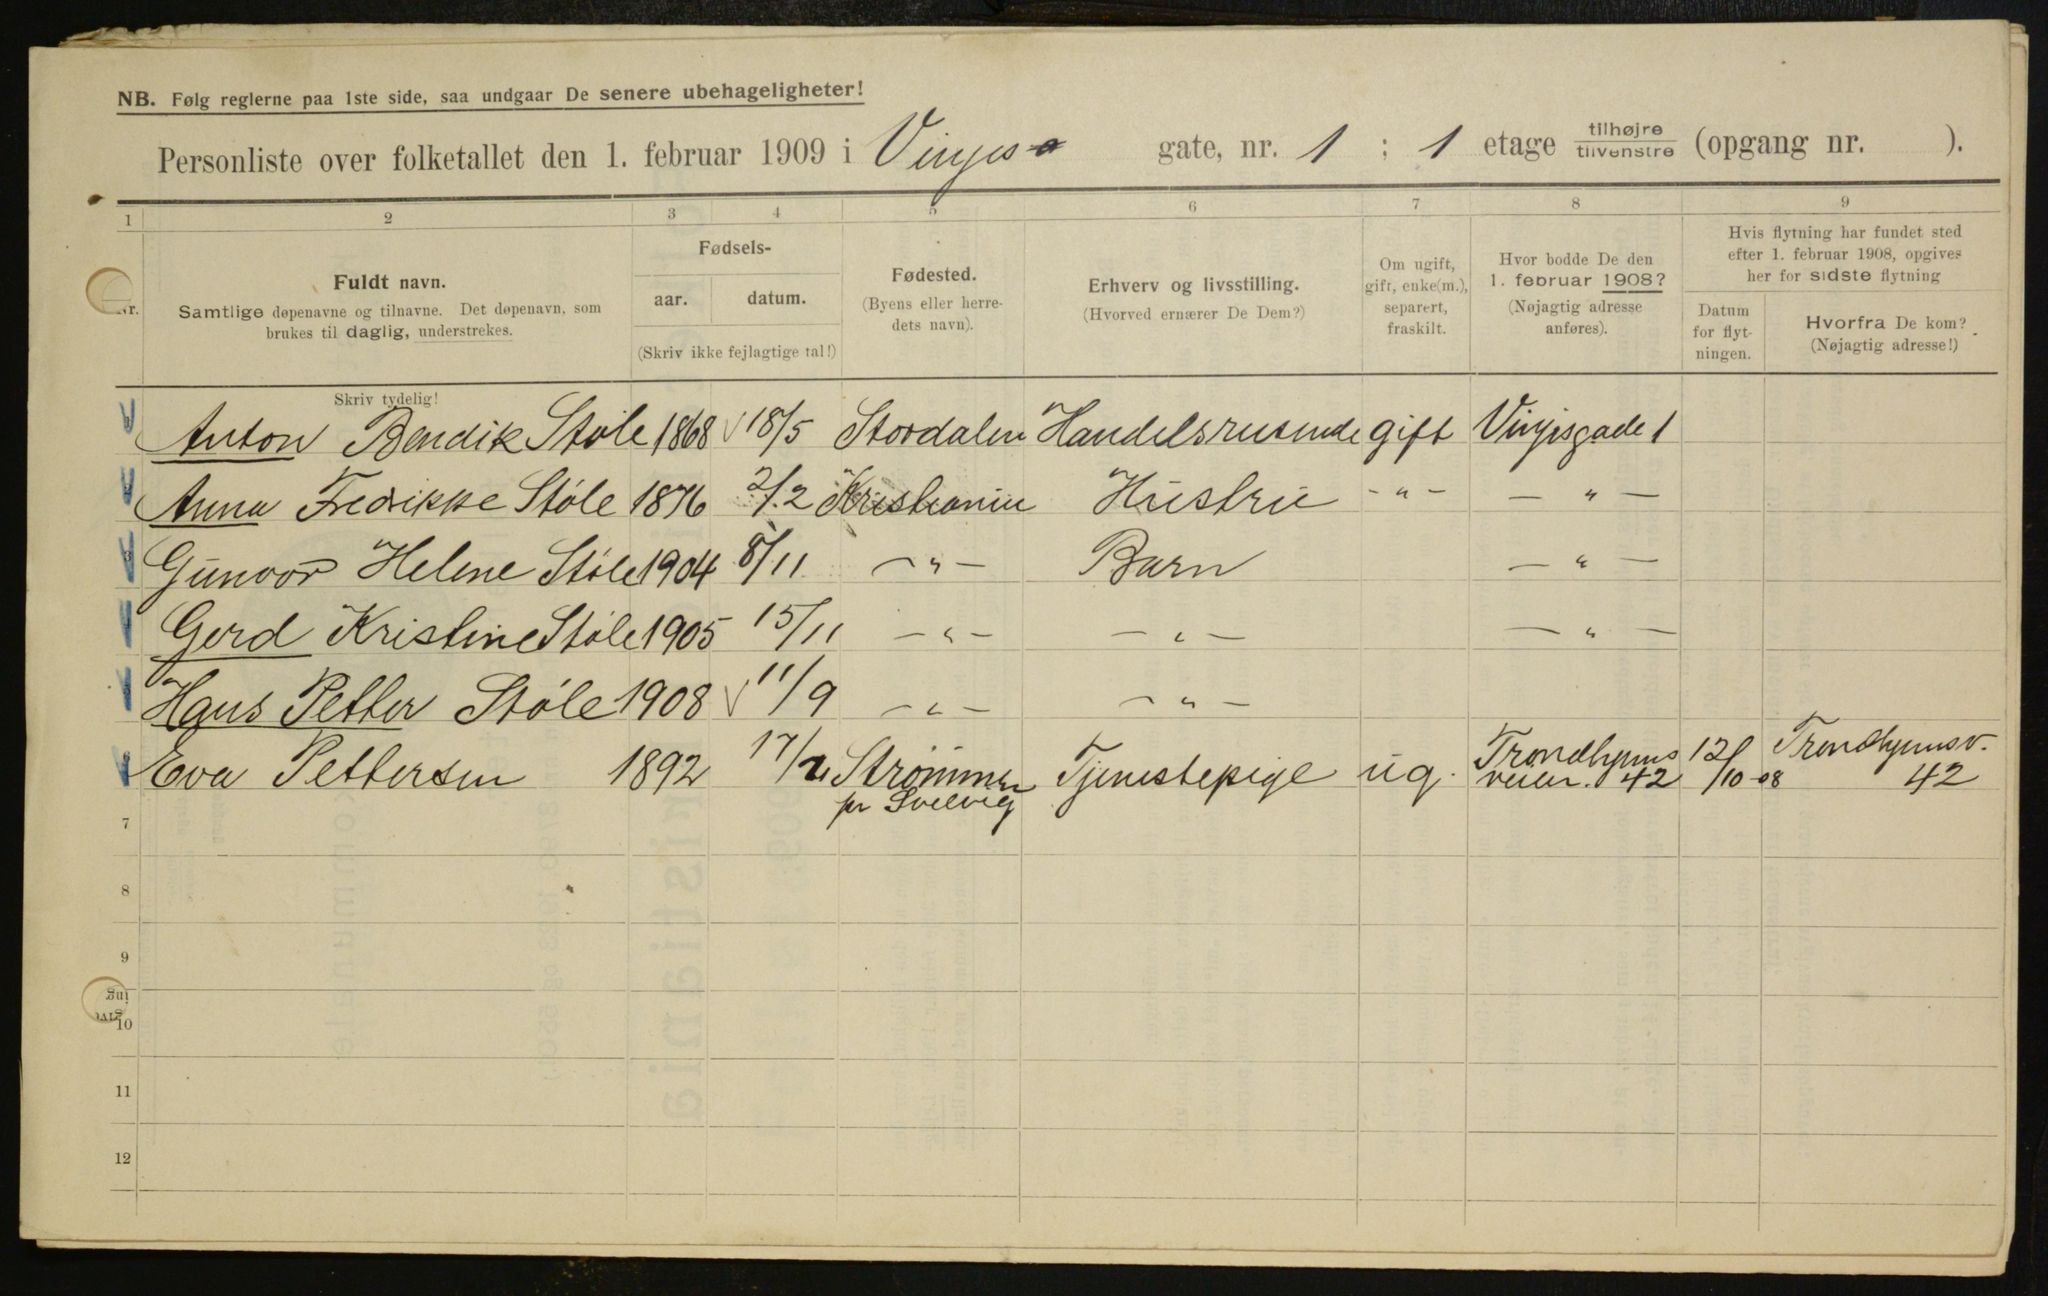 NB. Følg reglerne paa 1ste side, saa undgaar De senere ubehageligheter!
Personliste over folketallet den 1. februar 1909 i Vinjes gate, nr. 1 ; 1 etage tilhøjre tilvenstre (opgang nr. ).
1 2 3 4 5 6 7 8 9
Nr.
Fuldt navn.
Samtlige døpenavne og tilnavne. Det døpenavn, som
brukes til daglig, understrekes.
Fødsels-
aar. datum.
(Skriv ikke fejlagtige tal!)
Fødested.
(Byens eller herre-
dets navn).
Erhverv og livsstilling.
(Hvorved ernærer De Dem?)
Om ugift,
gift, enke(m.),
separert,
fraskilt.
Hvor bodde De den
1. februar 1908?
(Nøjagtig adresse
anføres).
Hvis flytning har fundet sted
efter 1. februar 1908, opgives
her for sidste flytning
Datum
for flyt-
ningen.
Hvorfra De kom?
(Nøjagtig adresse!)
Skriv tydelig!
Anton Bendik Støle 1868 18/5 Stordalen Handelsreisende gift Vinjesgade 1
Anna Fredrikke Støle 1876 2/12 Kristiania Hustru -"- -"-
Gunvor Helene Støle 1904 8/11 -"- Barn -"-
Gerd Kristine Støle 1905 15/11 -"- -"- -"-
Hans Petter Støle 1908 11/9 -"- -"-
Eva Pettersen 1892 Strømmen Tjenestepige ug. Trondhjems 12/10-08 Trondhjemsv.
pr Svelvig veien. 42 42
7
8
9
10
11
12